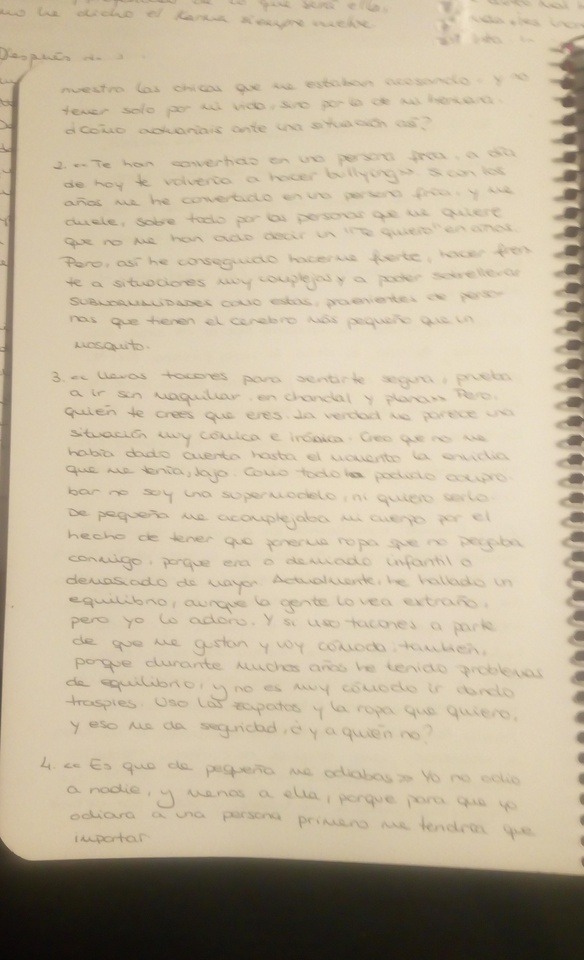 me ha dicho el Karma siempre vuelve
Después
nuestro las chicas que me estaban acosando, y no
temer solo por mi vida, sino por la de mi hermana.
¿Cómo actuaríais ante una situación así?
2. «Te han convertido en una persona fría, a día
de hoy te volvería a hacer bullying» Si con los
años me he convertido en una persona fría, y me
duele, sobre todo por las personas que me quiere
que no me han oído decir un "Te quiero" en años.
Pero, así he conseguido hacerme fuerte, hacer fren
te a situaciones muy complejas y a poder sobrellevar
SUBNORMALIDADES como estas, provenientes de perso-
nas que tienen el cerebro más pequeño que un
mosquito.
3. «Llevas tacones para sentirte segura, prueba
a ir sin maquillar, en chandal y plana» Pero,
quién te crees que eres. La verdad me parece una
situación muy cómica e irónica. Creo que no me
había dado cuenta hasta el momento la envidia
que me tenía, jajo. Como todo ha podido compro-
bar no soy una supermodelo, ni quiero serlo.
De pequeña me acomplejaba mi cuerpo por el
hecho de tener que ponerme ropa que no pegaba
conmigo, porque era o demasiado infantil o
demasiado de mayor. Actualmente, he hallado un
equilibrio, aunque la gente lo vea extraño,
pero yo lo adoro. Y si uso tacones a parte
de que me gustan y voy cómoda, también,
porque durante muchos años he tenido problemas
de equilibrio, y no es muy cómodo ir dando
traspies. Uso los zapatos y la ropa que quiero,
y eso me da seguridad, ¿y a quién no?
4. «Es que de pequeña me odiabas» Yo no odio
a nadie, y menos a ella, porque para que yo
odiara a una persona primero me tendría que
importar